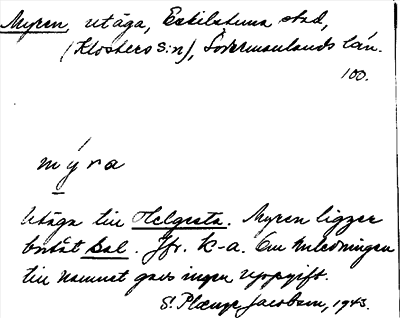 Myren, utäga, Eskilstuna stad,
(Klosters s:n), Södermanlands län.
100.
mýra
Utäga till Helgesta. Myren ligger
bortåt Bal. Jfr. k-a. Om anledningen
till namnet gavs ingen uppgift.
S. Jacobson, 1943.